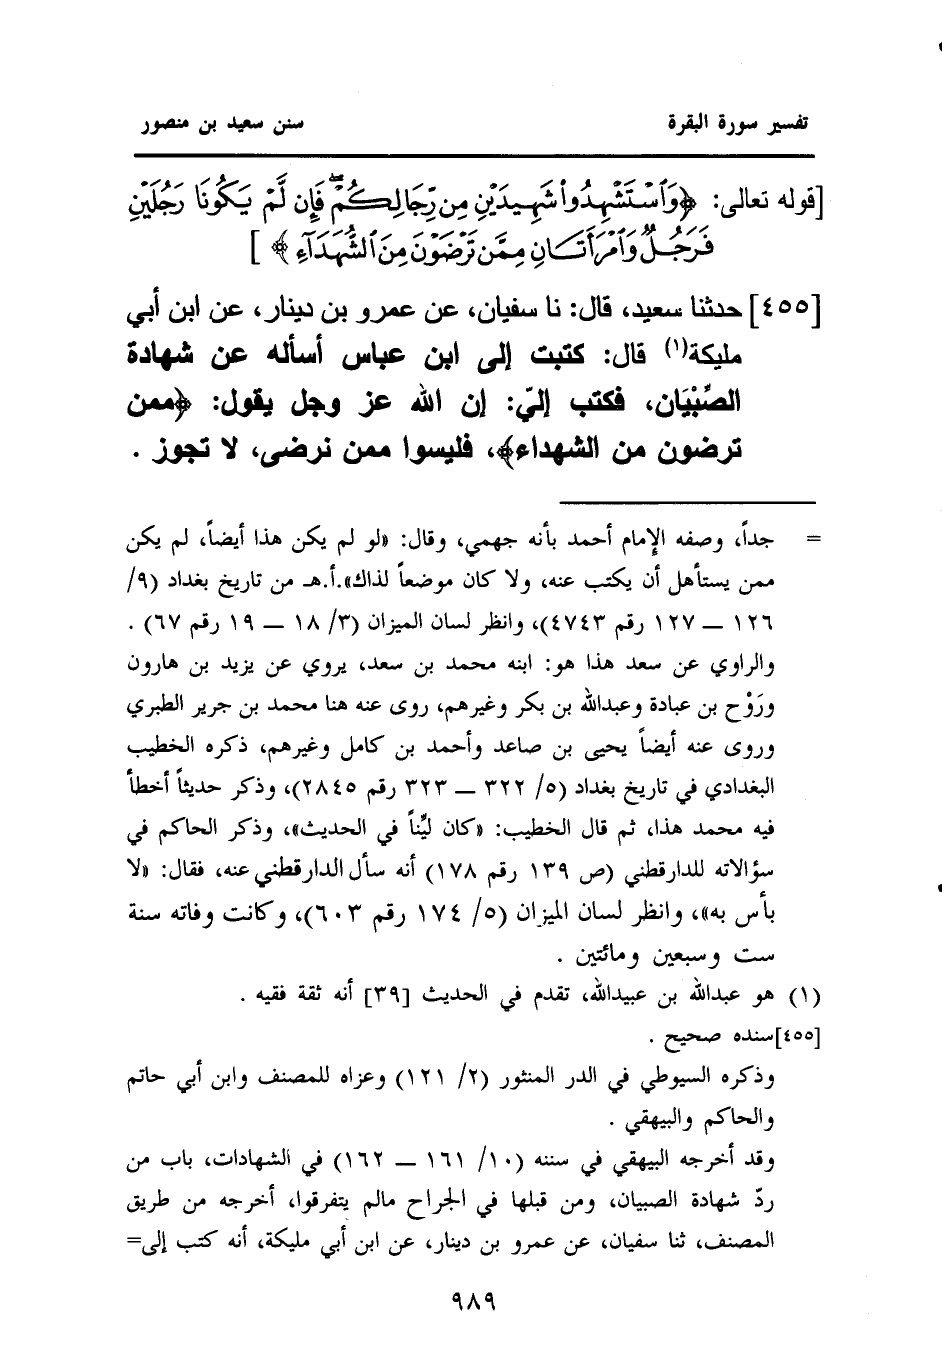 تفسير سورة البقرة سنن سعيد بن منصور
[قوله تعالى: ﴿وَٱسْتَشْهِدُوا۟ شَهِيدَيْنِ مِن رِّجَالِكُمْ ۖ فَإِن لَّمْ يَكُونَا رَجُلَيْنِ
فَرَجُلٌ وَٱمْرَأَتَانِ مِمَّن تَرْضَوْنَ مِنَ ٱلشُّهَدَآءِ ﴾ ]
[٤٥٥] حدثنا سعيد، قال: نا سفيان، عن عمرو بن دينار، عن ابن أبي
مليكة(١) قال: كتبت إلى ابن عباس أسأله عن شهادة
الصِّبْيَان، فكتب إليّ: إن الله عز وجل يقول: ﴿ممن
ترضون من الشهداء﴾، فليسوا ممن نرضى، لا تجوز .
= جداً، وصفه الإمام أحمد بأنه جهمي، وقال: «لو لم يكن هذا أيضاً، لم يكن
ممن يستأهل أن يكتب عنه، ولا كان موضعاً لذاك».أ.هـ من تاريخ بغداد (٩/
١٢٦ ــ ١٢٧ رقم ٤٧٤٣)، وانظر لسان الميزان (٣/ ١٨ ــ ١٩ رقم ٦٧) .
والراوي عن سعد هذا هو: ابنه محمد بن سعد، يروي عن يزيد بن هارون
ورَوْح بن عبادة وعبدالله بن بكر وغيرهم، روى عنه هنا محمد بن جرير الطبري
وروى عنه أيضاً يحيى بن صاعد وأحمد بن كامل وغيرهم، ذكره الخطيب
البغدادي في تاريخ بغداد (٥/ ٣٢٢ ــ ٣٢٣ رقم ٢٨٤٥)، وذكر حديثاً أخطأ
فيه محمد هذا، ثم قال الخطيب: «كان ليِّناً في الحديث»، وذكر الحاكم في
سؤالاته للدارقطني (ص ١٣٩ رقم ١٧٨) أنه سأل الدارقطني عنه، فقال: «لا
بأس به»، وانظر لسان الميزان (٥/ ١٧٤ رقم ٦٠٣)، وكانت وفاته سنة
ست وسبعين ومائتين .
(١) هو عبدالله بن عبيدالله، تقدم في الحديث [٣٩] أنه ثقة فقيه .
[٤٥٥]سنده صحيح .
وذكره السيوطي في الدر المنثور (٢/ ١٢١) وعزاه للمصنف وابن أبي حاتم
والحاكم والبيهقي .
وقد أخرجه البيهقي في سننه (١٠/ ١٦١ ــ ١٦٢) في الشهادات، باب من
ردّ شهادة الصبيان، ومن قبلها في الجراح مالم يتفرقوا، أخرجه من طريق
المصنف، ثنا سفيان، عن عمرو بن دينار، عن ابن أبي مليكة، أنه كتب إلى=
٩٨٩